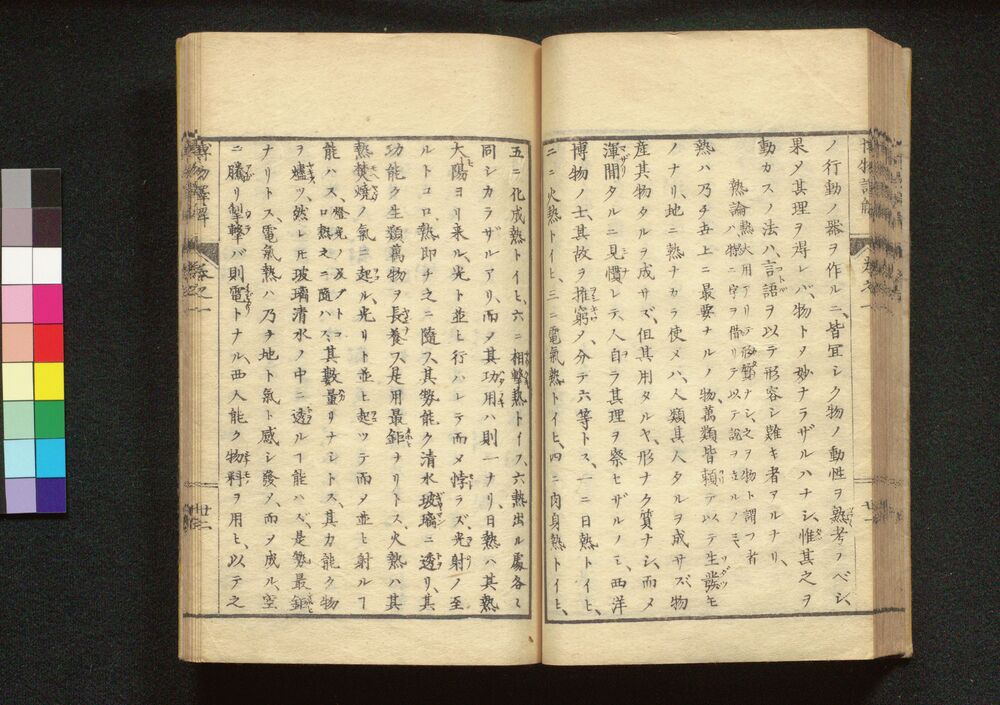 ノ行動ノ器ヲ作ルニ、皆宜シク物ノ動性ヲ熟考フベシ、
果〆其理ヲ得レバ、物トヲ妙ナラザルハナシ、惟其之ヲ
動カスノ法ハ、言語ヲ以テ形容シ難キ者アルナリ、
熱論 熱大用アリテ形質ナシ、之ヲ物ト謂フ者
ハ、物ニ字ヲ借リテ以テ説ヲ立ルノミ
熱ハ乃チ吾上ニ最要ナルノ物、萬類皆頼テ以テ生發モ
ノナリ、地ニ熱ナカラ使メハ、人類其人タルヲ成サズ、物
産其物タルヲ成サズ、但其用タルヤ、形ナク質ナシ、而〆
渾間タルニ見慣レテ、人自ラ其理ヲ察セザルノミ、西洋
博物ノ士、其故ヲ推窮ノ、分テ六等トス、一ニ日熱トイヒ、
二ニ火熱トイヒ、三ニ電氣熱トイヒ、四ニ肉身熱トイヒ、
五ニ化成熱トイヒ、六ニ相撃熱トイフ、六熱出ル處各〻
同シカラザルアリ、而〆其功用ハ則一ナリ、日熱ハ其熱
太陽ヨリ来ル、光ト並ヒ行ハレテ而〆悖ラズ、光射ノ至
ルトコロ、熱即チ之ニ隨フ、其勢能ク清水玻璃ニ透リ、其
功能ク生類萬物ヲ長養ス、是用最鉅ナリトス、火熱ハ其
熱焚燒ノ氣ニ起ル、光リト並ヒ起ツテ而〆並ヒ射ルヿ
能ハス、燈光ノ及ブトコロ熱之ニ隨ハス、其數量リナシトス、其力能ク物
ヲ爐ツ、然レ𪜈玻璃清水ノ中ニ透ルヿ能ハズ、是勢最鉅
ナリトス、電氣熱ハ乃チ地ト氣ト感シ發〆、而〆成ル、空
ニ騰リ掣轟バ則電トナル、西人能ク物料ヲ用ヒ、以テ之